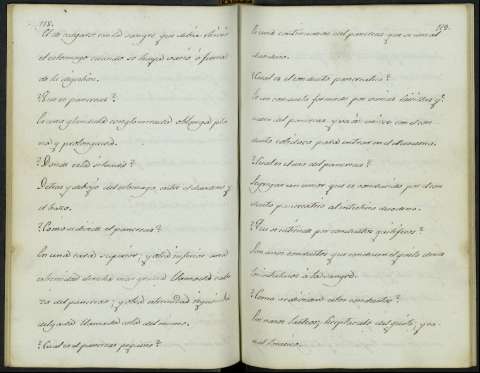 118.
El de cargarse con la sangre, que debia
el estomago cuando se haya vacio ó fuera
de la digestion.
?Que es pancreas?
Es una glandula conglomerada oblonga pla
na y prolongada.
?Donde está situado?
Detras y debajo del estomago, entre el duodeno y
el bazo.
?Como se divide el pancreas?
En una cara superior, y otra inferior: una
estremidad derecha mas gruesa llamada cabe
za del pancreas; y otra estremidad izquierda
delgada llamada cola del mismo.
?Cual es el pancreas pequeño?
119.
Es una continuacion del pancreas que se une al
duodeno.
?Cual es el conducto pancreatico?
Es un conducto formado por varias
del pancreas, y va á unirse con el con
ducto coledoco, para entrar en el duodeno.
?Cual es el uso del pancreas?
Segregar un umor, que es conducido por el con
ducto pancreatico al intestino duodeno.
?Que se entiende por conductos
Son unos conductos que conducen el quilo de los
intestinos á la sangre.
?Como se dividen estos conductos?
En vasos lacteos, receptaculo del quilo, y ca
nal toracico.